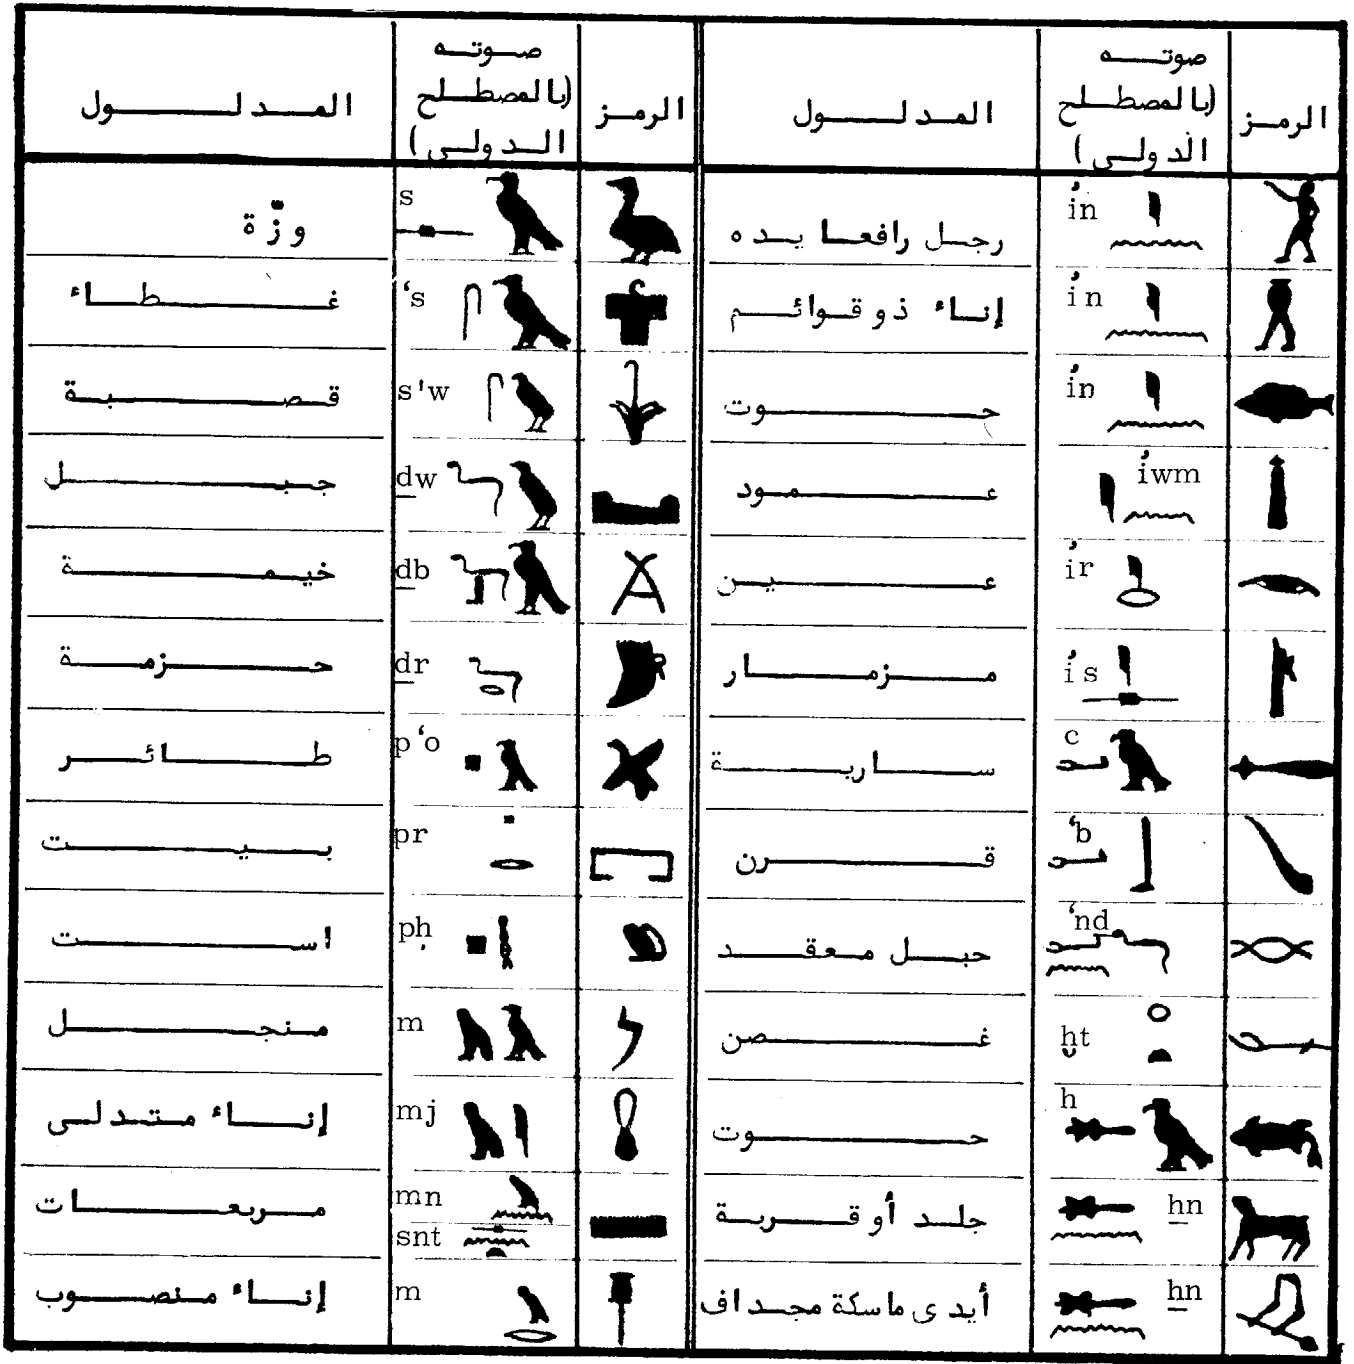 الرمز
صوته
(بالمصطلح
الدولى)
المدلول
i̓n رجل رافعا يده
i̓n إناء ذو قوائم
i̓n حوت
i̓wm عمود
i̓r عين
i̓s مزمار
c سارية
‘b قرن
‘nd حبل معقد
ḫt غصن
h حوت
ẖn جلد أو قربة
ẖn أيدى ماسكة مجداف
الرمز
صوته
(بالمصطلح
الدولى)
المدلول
s وزّة
‘s غطاء
s'w قصبة
ḏw جبل
ḏb خيمة
ḏr حزمة
p‘o طائر
pr بيت
pḥ است
m منجل
mj إناء متدلى
mn مربعات
snt
m إناء منصوب